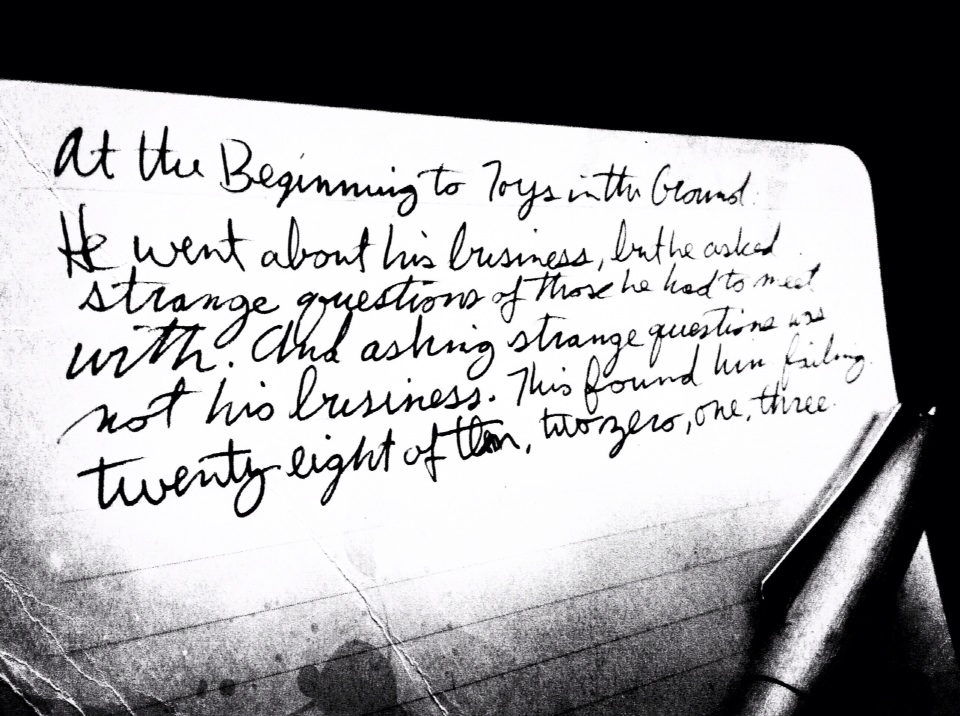 At the Beginning to Toys in the Ground.
He went about his business, but he asked
strange questions of those he had to meet
with. And asking strange questions was
not his business. This found him failing.
twenty eight of ten, two zero, one, three.